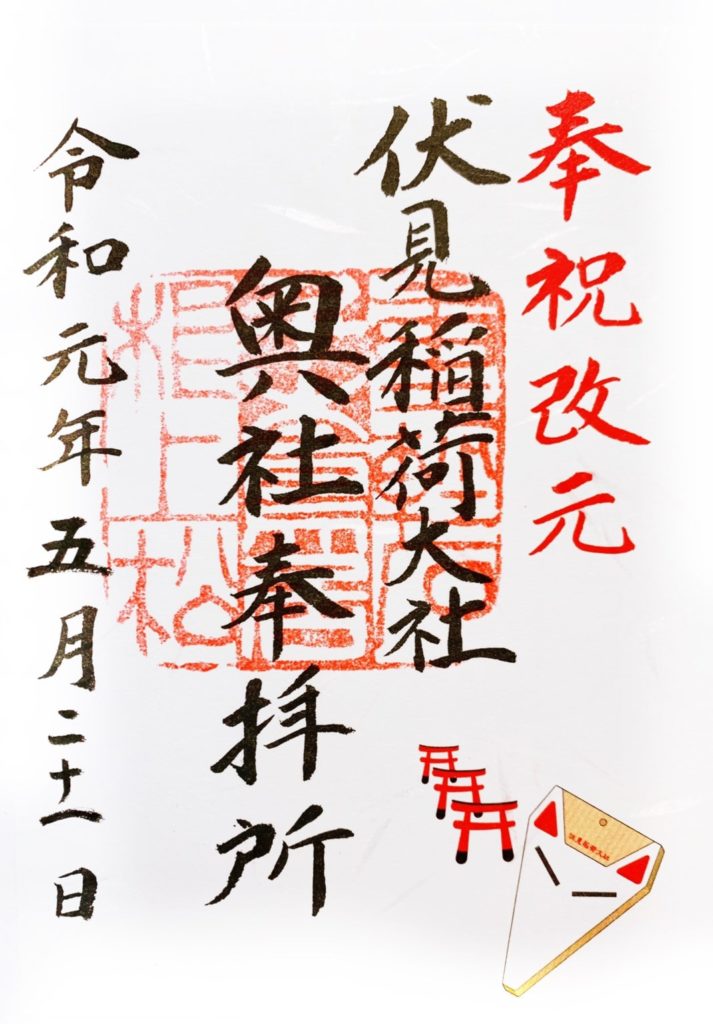 奉祝改元
伏見稲荷大社
奥社奉拝所
令和元年五月二十一日
伏見稲荷大社